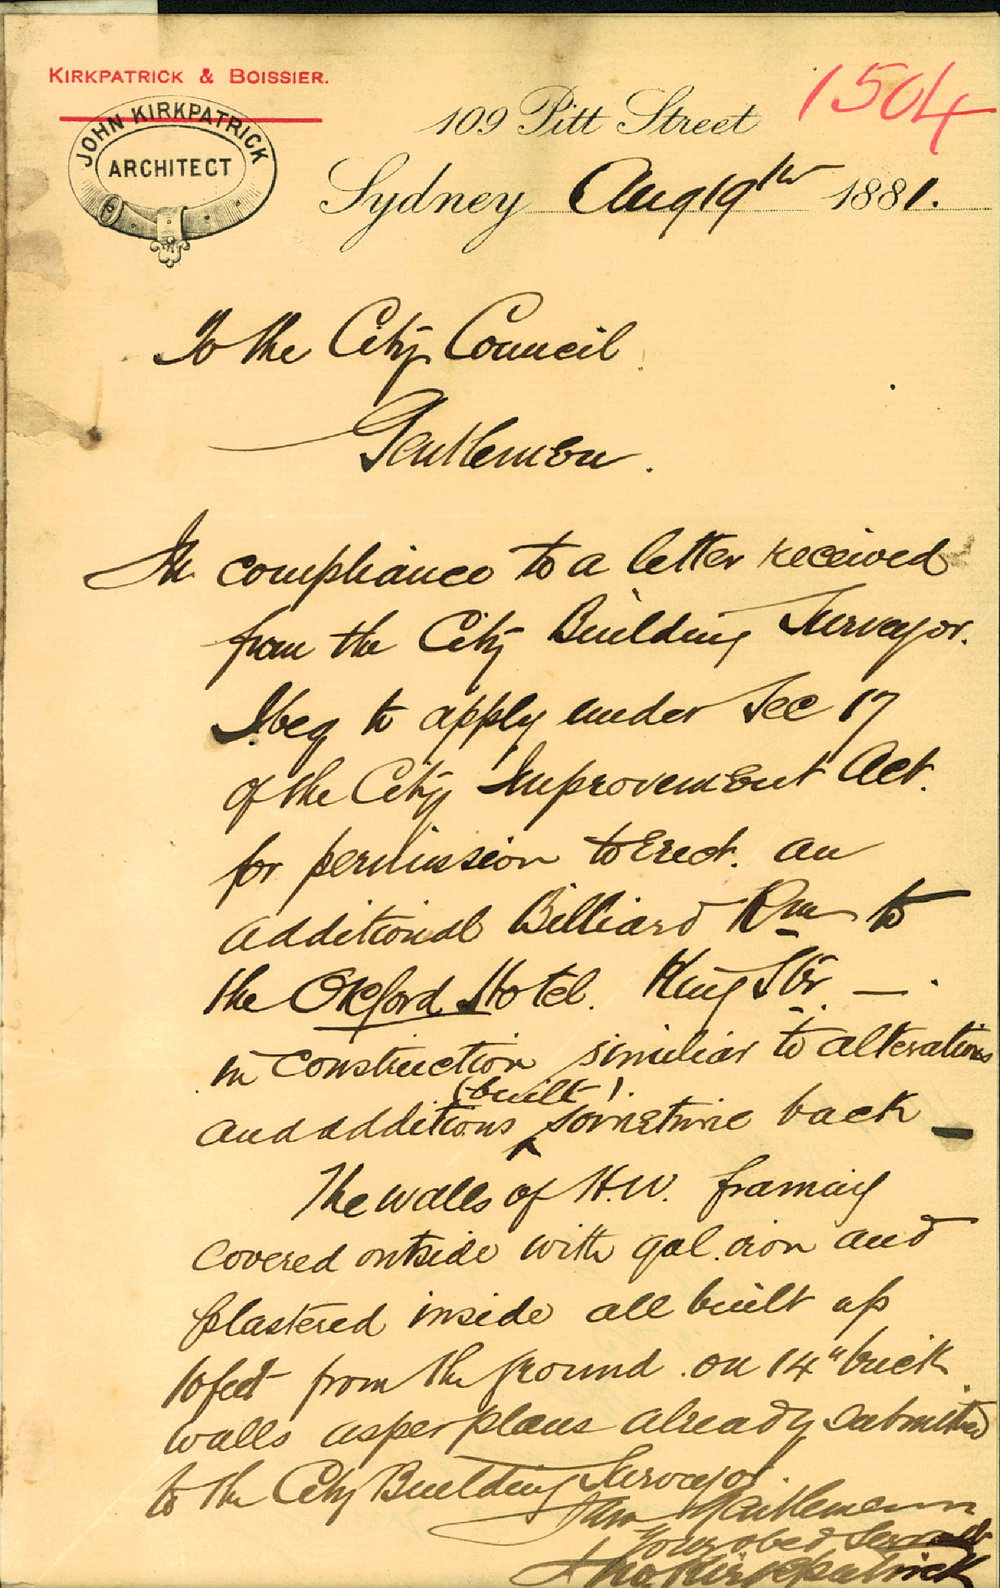 KIRKPATRICK & BOISSIER.
1504
JOHN KIRKPATRICK
ARCHITECT
109 Pitt Street
Sydney Aug 19th 1881.
To the City Council
Gentlemen.
In compliance to a letter received
from the City Building Surveyor.
I beg to apply under Sec 17
of the City Improvement Act.
for permission to Erect. an
additional Billiard Rm to
the Oxford Hotel. King Str. —.
in construction similiar to alterations
(built).
and additions ^ sometime back —
The walls of H.W. framing
covered outside with gal. iron and
plastered inside all built up
10 feet from the ground. on 14" brick
walls as per plans already submitted
to the City Building Surveyor.
I am Gentlemen
Your obed Servant
Jno Kirkpatrick